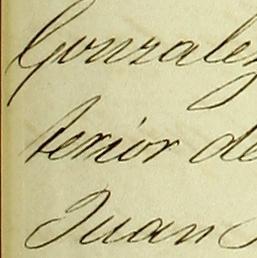 Gonzalez
terior de
Juan